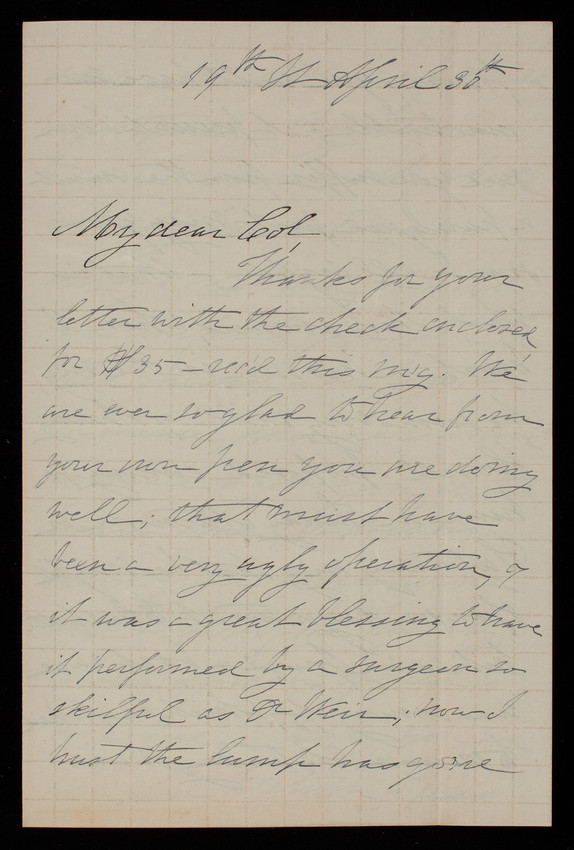 19th St April 30th
My dear Col,
Thanks for your
letter with the check enclosed
for $35 - rec'd this m'g. We
are ever so glad to hear from
your own pen you are doing
well; that must have
been a very ugly operation, &
it was a great blessing to have
it performed by a surgeon so
skilful as Dr Weir; now I
trust the lump has gone